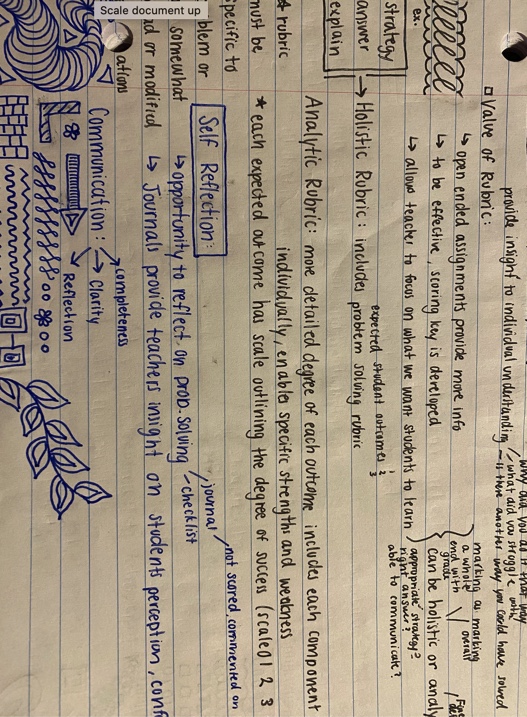 Scale document up
why did you do it that way
what did you struggle with
provide insight to individual understanding – is there another way you could have solved
Value of Rubric:
↳ open ended assignments provide more info
↳ to be effective, scoring key is developed
↳ allow teacher to focus on what we want students to learn
marking as marking
a whole
end with
grade
overall
can be holistic or
appropriate strategy?
right answer?
able to communicate?
ex.
strategy
answer
explain
expected student outcomes
1
2
3
→ Holistic Rubric: includes problem solving rubric
Analytic Rubric: more detailed degree of each outcome includes each component
individually, enables specific strengths and weakness
* rubric
must be
specific to
blem or
somewhat
d or modified
* each expected outcome has scale outlining the degree of success (scaled 1 2 3
Self Reflection:
↳ opportunity to reflect on prob. solving
journal
checklist
not scored, commented on
↳ Journals provide teachers insight on students perception,
ations
Communication:
completeness
→ Clarity
Reflection